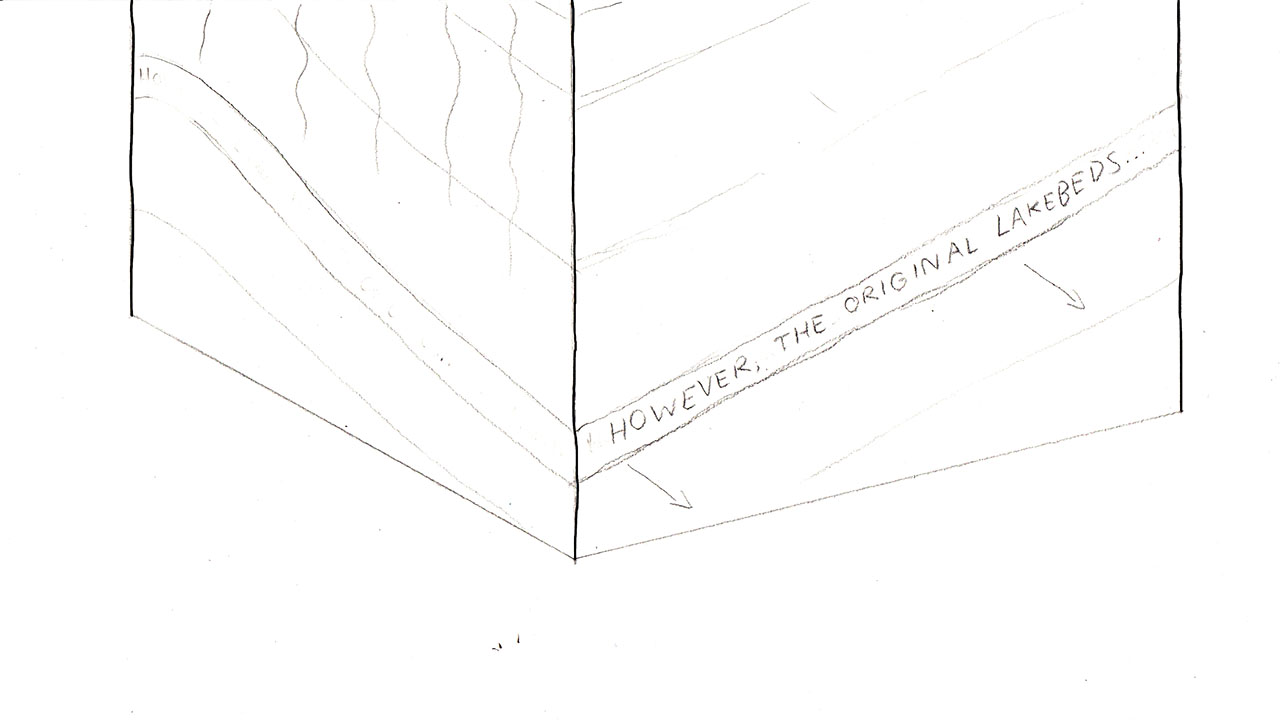 HOWEVER, THE ORIGINAL LAKEBEDS...